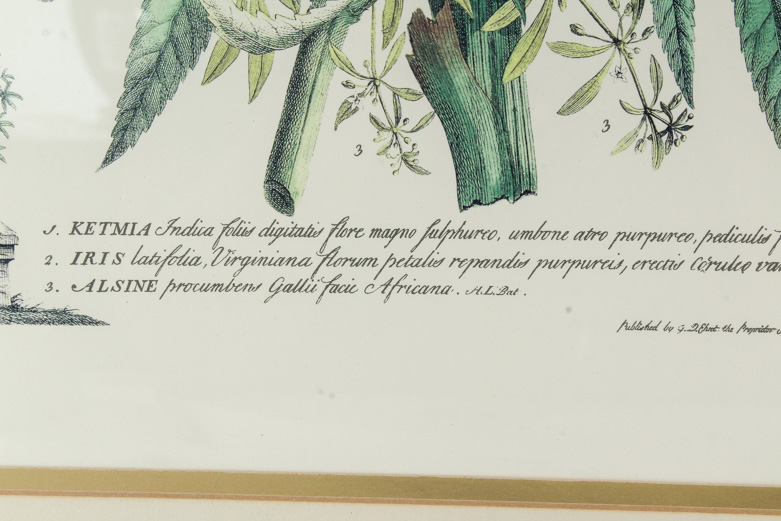 3
3
1. KETMIA Indica foliis digitatis flore magno sulphureo, umbone atro purpureo, pediculis
2. IRIS latifolia, Virginiana florum petalis repandis purpureis, erectis Cœruleo var
3. ALSINE procumbens Gallii facie Africana. H.L.Bat.
Published by G. D. Ehret the Proprietor